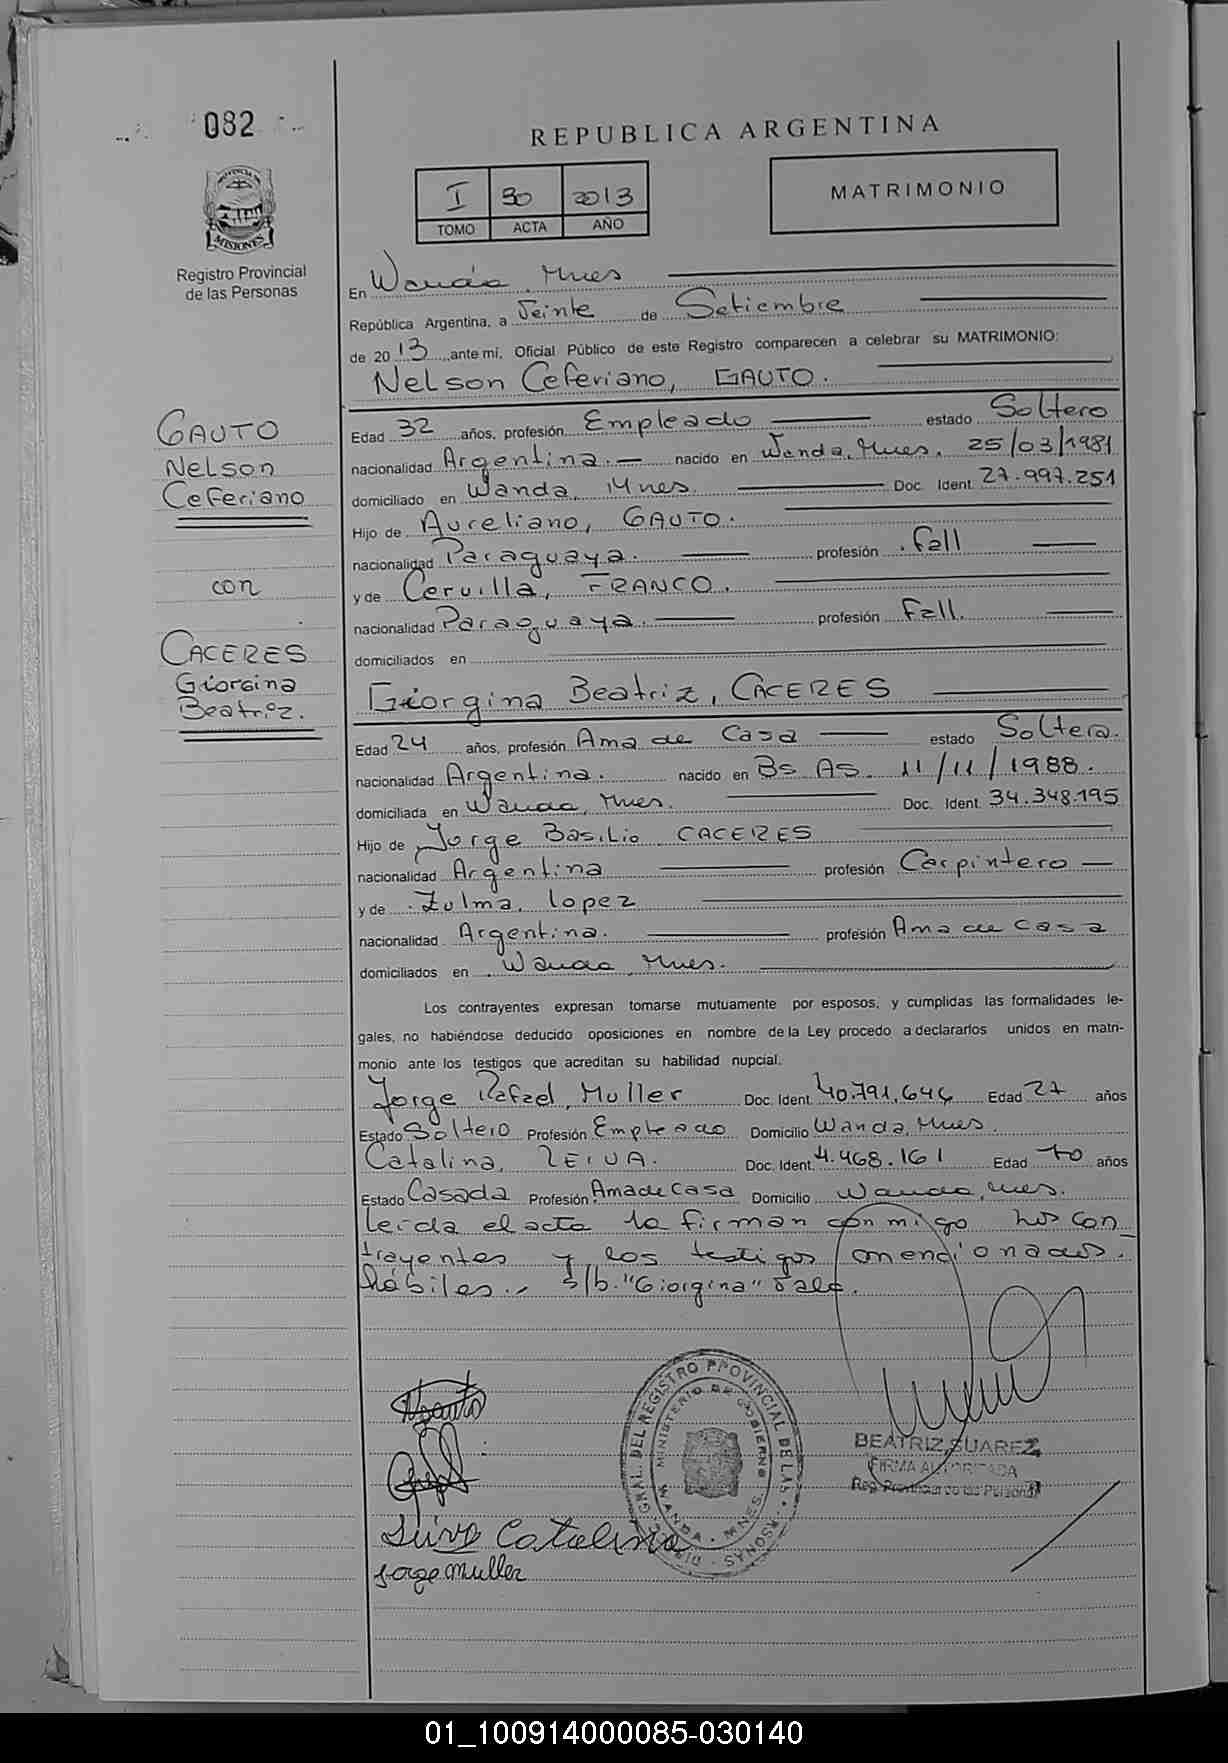 082
REPUBLICA ARGENTINA
I 30 2013
TOMO ACTA AÑO
MATRIMONIO
PROVINCIA DE
MISIONES
Registro Provincial
de las Personas
En Wanda, Mnes
República Argentina, a Veinte de Setiembre
de 2013, ante mí, Oficial Público de este Registro comparecen a celebrar su MATRIMONIO:
Nelson Ceferiano, GAUTO.
GAUTO
Nelson
Ceferiano
con
CACERES
Giorgina
Beatriz.
Edad 32 años, profesión Empleado estado Soltero
nacionalidad Argentina.- nacido en Wanda, Mnes. 25/03/1981
domiciliado en Wanda, Mnes. Doc. Ident. 27.997.251
Hijo de Aureliano, GAUTO.
nacionalidad Paraguaya. profesión Fall
y de Cervilla, FRANCO.
nacionalidad Paraguaya. profesión Fall.
domiciliados en
Giorgina Beatriz, CACERES
Edad 24 años, profesión Ama de Casa estado Soltera.
nacionalidad Argentina. nacido en Bs As. 11/11/1988.
domiciliada en Wanda, Mnes. Doc. Ident. 34.348.195
Hijo de Jorge Basilio CACERES
nacionalidad Argentina profesión Carpintero
y de Zulma, Lopez
nacionalidad Argentina. profesión Ama de Casa
domiciliados en Wanda, Mnes.
Los contrayentes expresan tomarse mutuamente por esposos, y cumplidas las formalidades le-
gales, no habiéndose deducido oposiciones en nombre de la Ley procedo a declararlos unidos en matri-
monio ante los testigos que acreditan su habilidad nupcial.
Jorge Rafael, Muller Doc. Ident. 40.791.646 Edad 27 años
Estado Soltero Profesión Empleado Domicilio Wanda, Mnes.
Catalina, Doc. Ident. 4.468.161 Edad 70 años
Estado Casada Profesión Ama de Casa Domicilio Wanda, Mnes.
Leida el acta la firman conmigo los con
trayentes y los testigos mencionados.-
hábiles.- s/b. "Giorgina" Vale.
Ngauto
DEL REGISTRO PROVINCIAL DE LAS PERSONAS
MINISTERIO DE GOBIERNO
WANDA - MNES.
BEATRIZ SUAREZ
FIRMA AUTORIZADA
Reg. Provincial de las Personas
Catalina
Jorge Muller
01_100914000085-030140